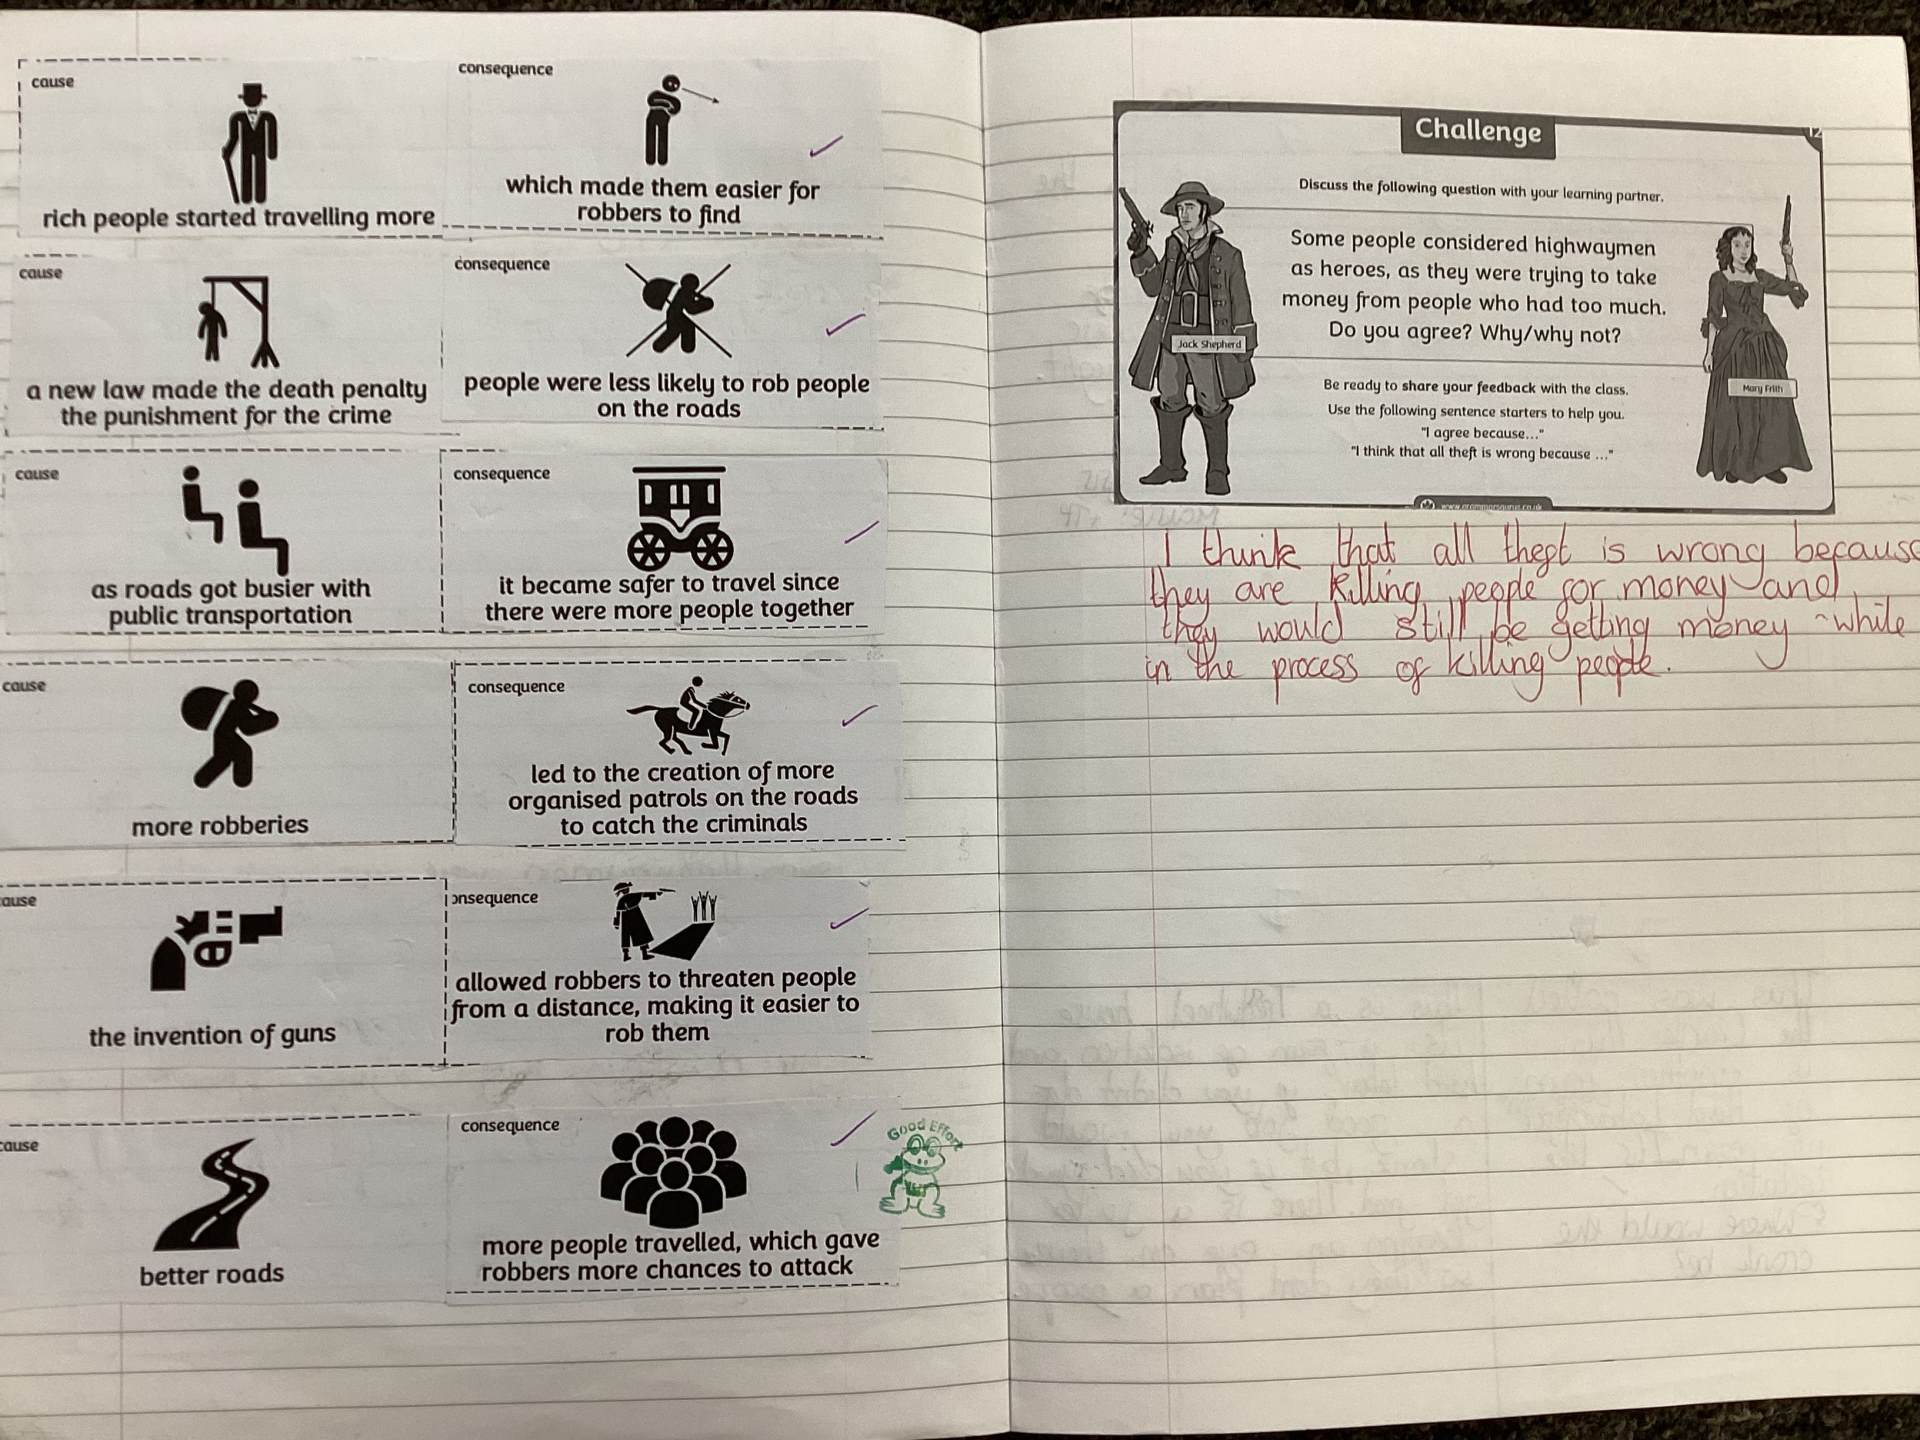 cause
rich people started travelling more
consequence
which made them easier for
robbers to find
cause
a new law made the death penalty
the punishment for the crime
consequence
people were less likely to rob people
on the roads
cause
as roads got busier with
public transportation
consequence
it became safer to travel since
there were more people together
cause
more robberies
consequence
led to the creation of more
organised patrols on the roads
to catch the criminals
ause
the invention of guns
onsequence
allowed robbers to threaten people
from a distance, making it easier to
rob them
cause
better roads
consequence
more people travelled, which gave
robbers more chances to attack
Good Effort
12
Challenge
Discuss the following question with your learning partner.
Some people considered highwaymen
as heroes, as they were trying to take
money from people who had too much.
Do you agree? Why/why not?
Jack Shepherd
Mary Frith
Be ready to share your feedback with the class.
Use the following sentence starters to help you.
"I agree because..."
"I think that all theft is wrong because ..."
www.grammarsaurus.co.uk
I think that all theft is wrong because
they are killing people for money and
they would still be getting money while
in the process of killing people.